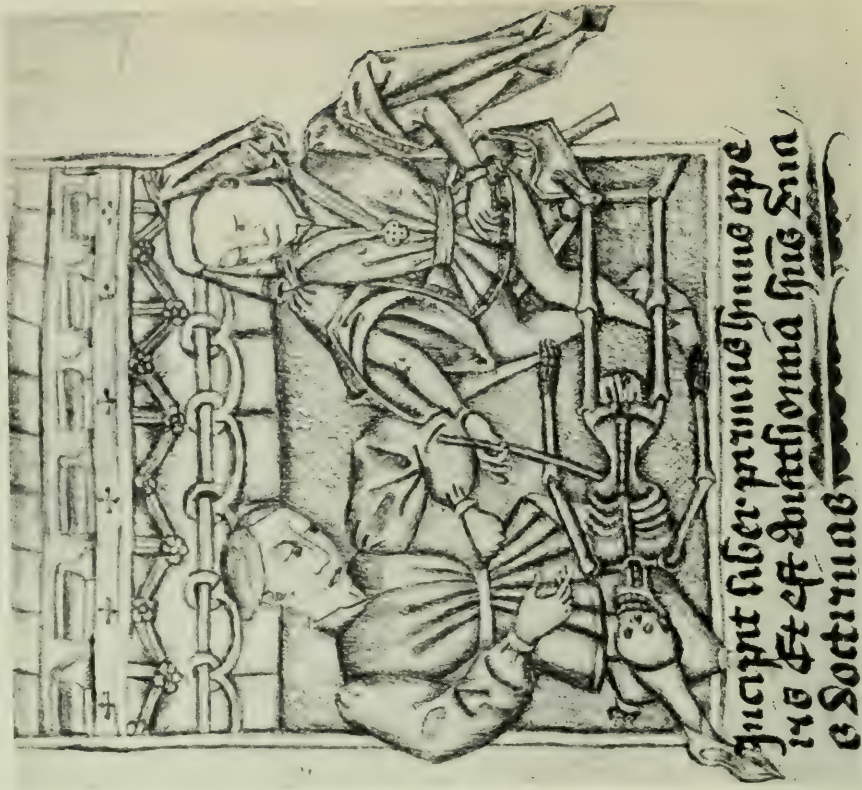 Incipit liber primus huius ope
ris Et est Anathomia huis dua
s doctrinas